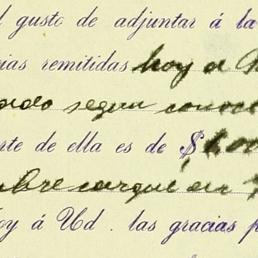 l gusto de adjuntar á la
ias remitidas hoy a
pido segun conoc
rte de ella es de $
bre cargué en
oy á Ud. las gracias p